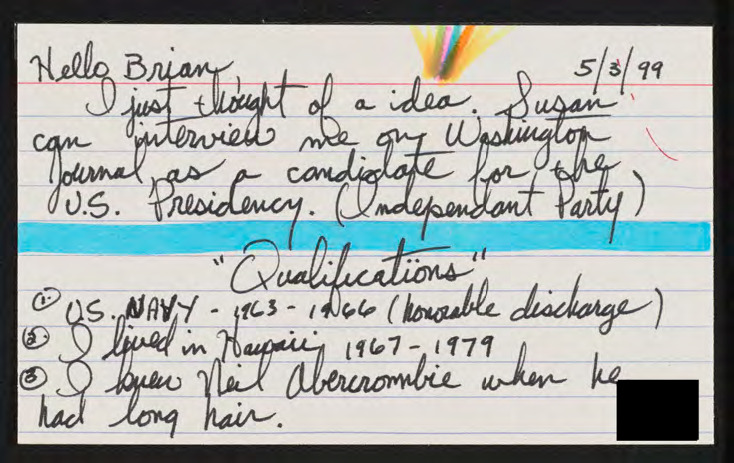 Hello Brian 5/3/99
I just thought of a idea. Susan
can interview me on Washington
Journal as a candidate for the
U.S. Presidency. (Independant Party)
"Qualifications"
1. U.S. NAVY - 1963 - 1966 (honorable discharge)
2. I lived in Hawaii, 1967 - 1979
3. I knew Neil Abercrombie when he
had long hair.